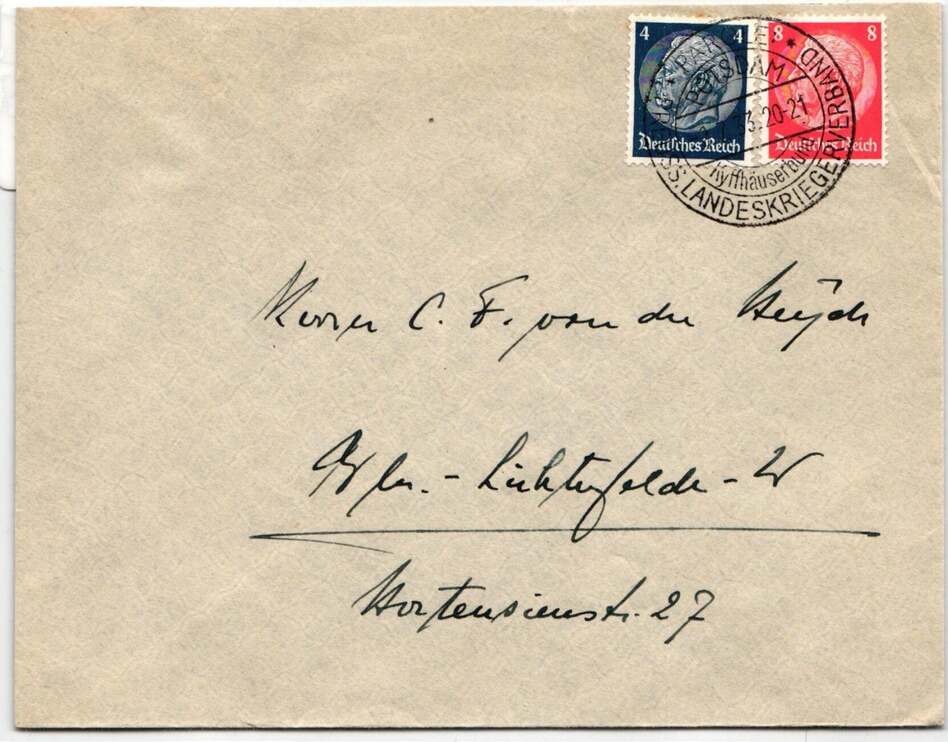 4 4
Deutsches Reich
8 8
Deutsches Reich
POTSDAM
33.20-21
Kyffhäuserbund
LANDESKRIEGERVERBAND
Herrn C. F. von der
Bln.-Lichterfelde-W
Hortensienstr. 27